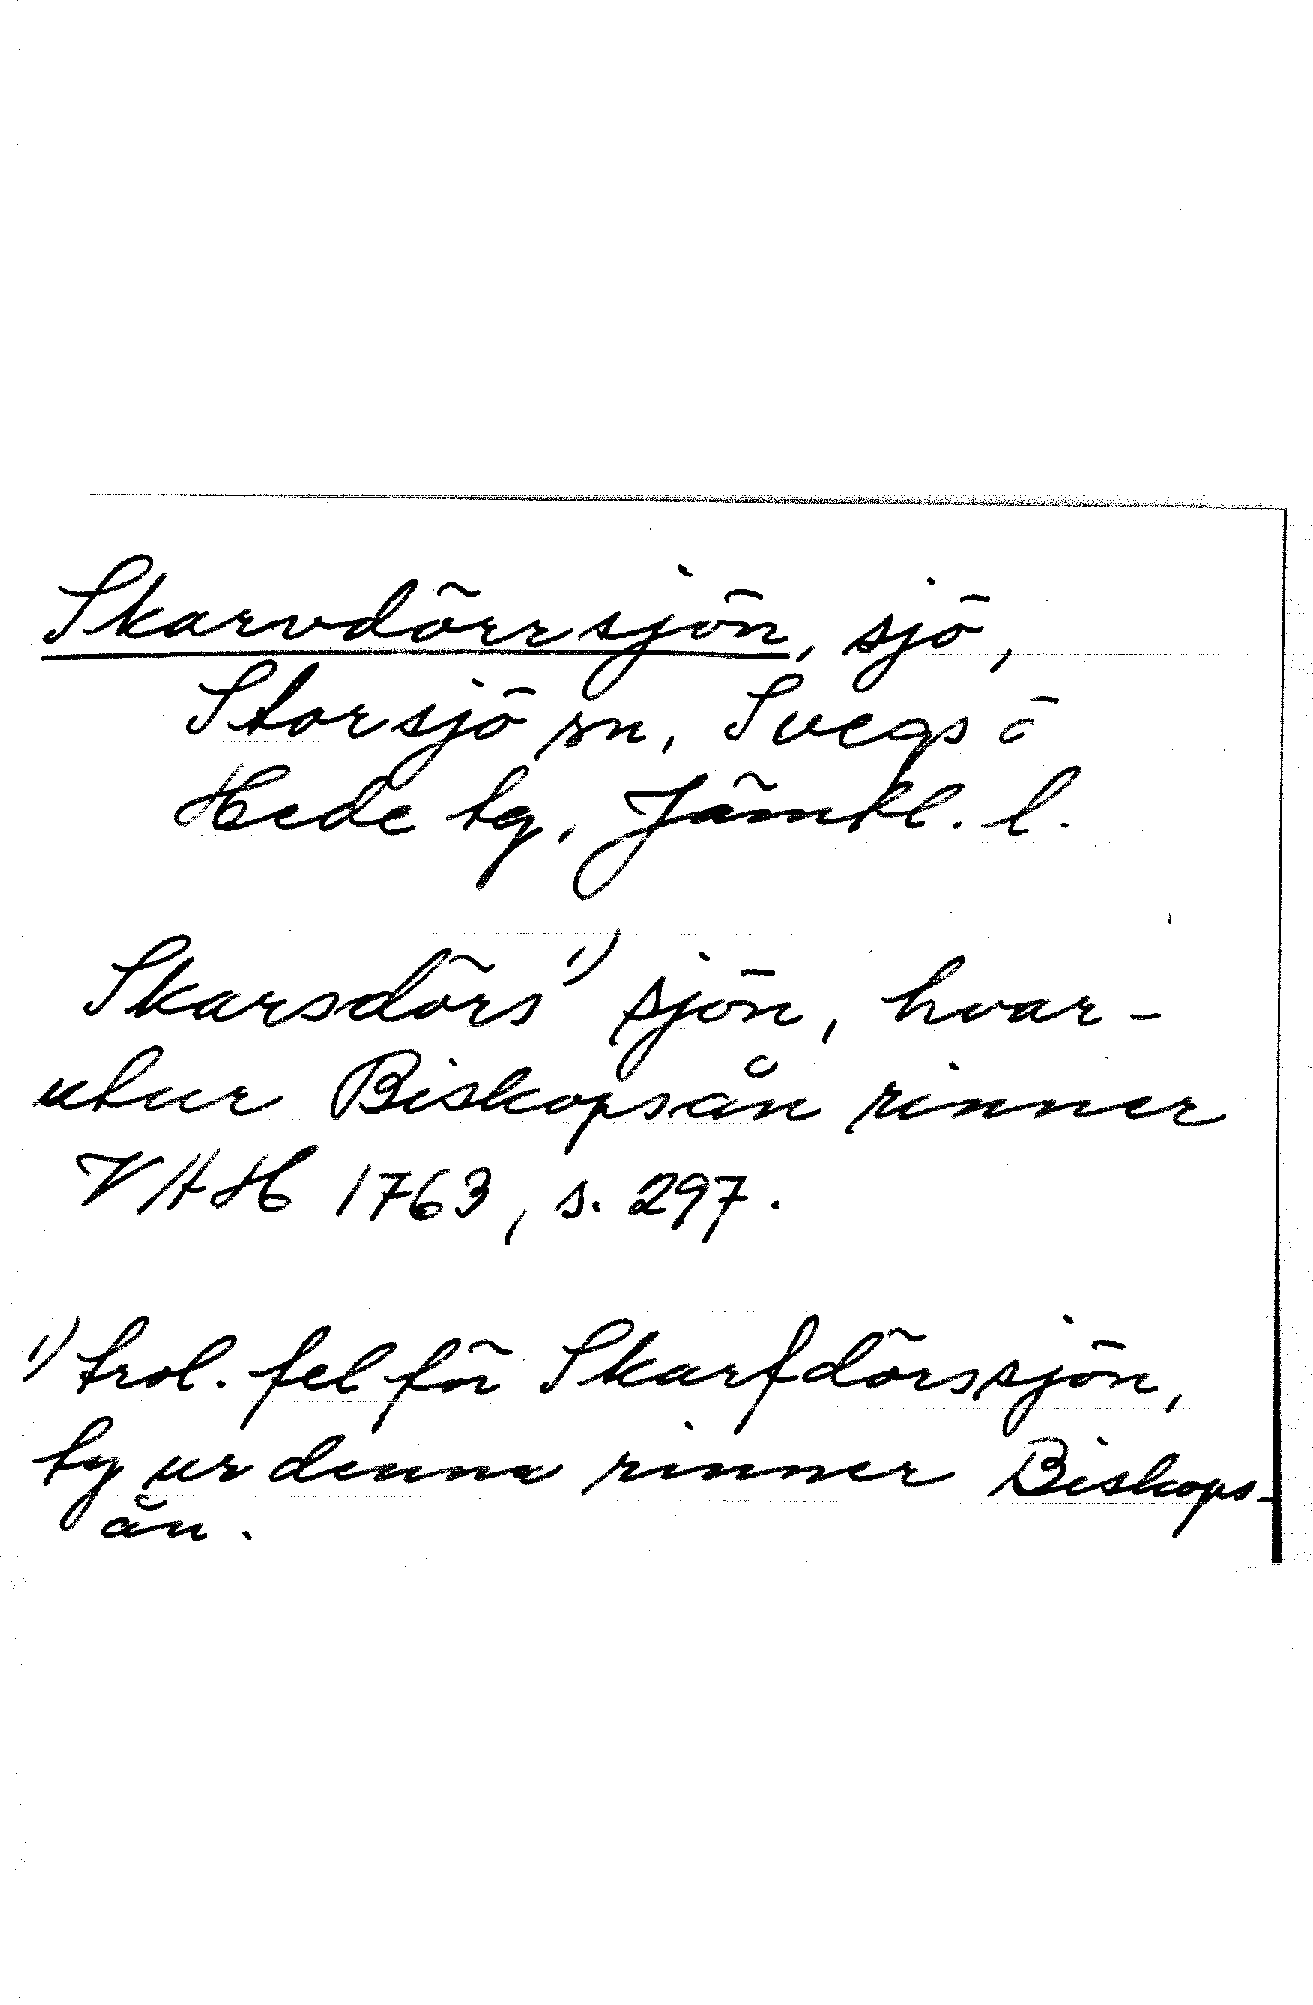 Skarvdörrsjön, sjö,
Storsjö sn, Svegs o
Hede tg, Jämtl. l.
Skarsdörs¹⁾ sjön, hvar-
utur Biskopsån rinner
VAH 1763, s. 297.
¹⁾ trol. fel för Skarfdörssjön,
ty ur denna rinner Biskops-
ån.